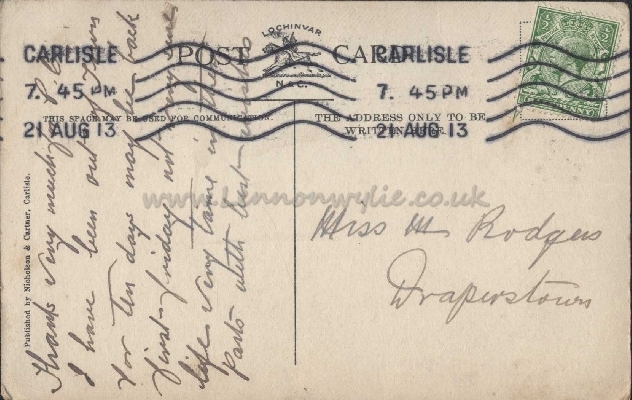 LOCHINVAR
N & C.
POST CARD
CARLISLE
7. 45 PM
21 AUG 13
CARLISLE
7. 45 PM
21 AUG 13
THIS SPACE MAY BE USED FOR COMMUNICATION.
THE ADDRESS ONLY TO BE
WRITTEN HERE.
Published by Nicholson & Cartner, Carlisle.
Thanks very much for P.C.
I have been out of Town
for Ten days may be back
first Friday not
life very tame in these
parts with best wishes
Miss M Rodgers
Draperstown
www.lennonwylie.co.uk